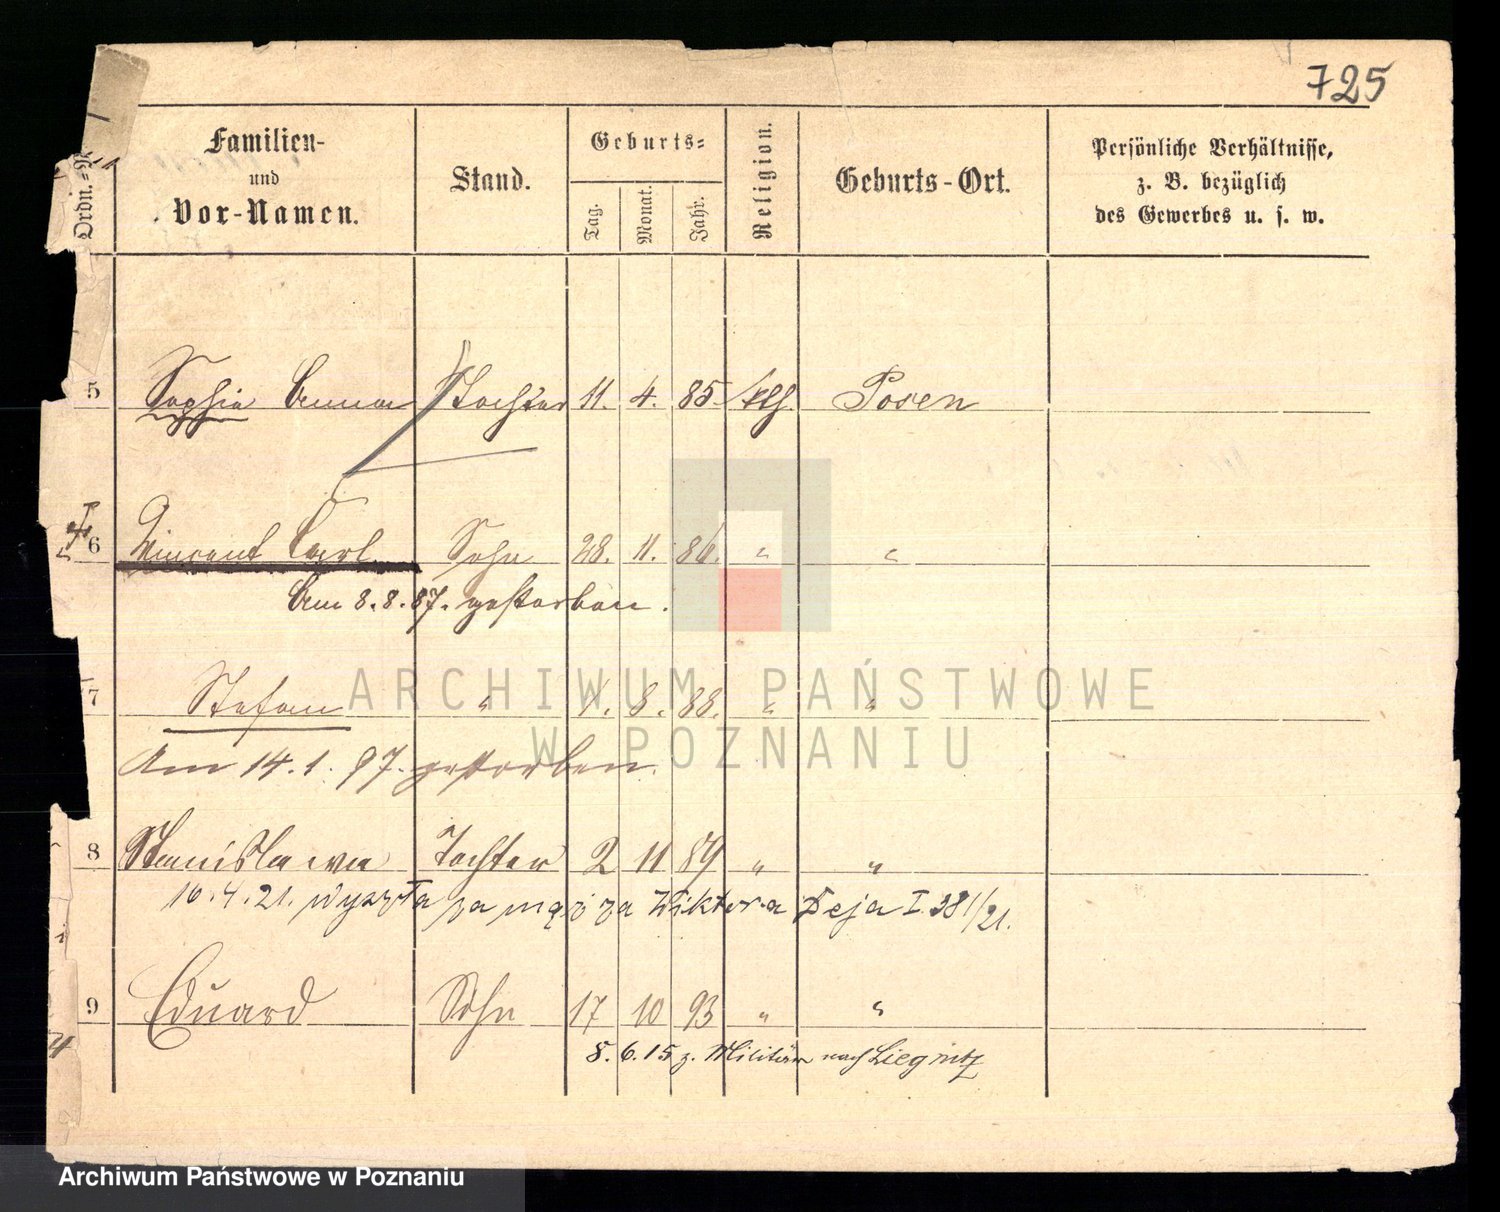 725
Ordn.-N
Familien-
und
Vor-Namen.
Stand.
Geburts-
Tag.
Monat.
Jahr.
Religion.
Geburts-Ort.
Persönliche Verhältnisse,
z. B. bezüglich
des Gewerbes u. s. w.
5 Sophie Anna Tochter 11. 4. 85 kth. Posen
6 Vincent Carl Sohn 28. 11. 86. " "
Am 8.8.87. gestorben.
7 Stefan " 1. 8. 88. " "
Am 14.1.97. gestorben.
8 Stanislawa Tochter 2 11 89 " "
16.4.21. wyszła za mąż za Wiktora Deja I. 381/21.
9 Eduard Sohn 17 10 93 " "
8.6.15 z. Militär nach Liegnitz
ARCHIWUM PAŃSTWOWE
W POZNANIU
Archiwum Państwowe w Poznaniu